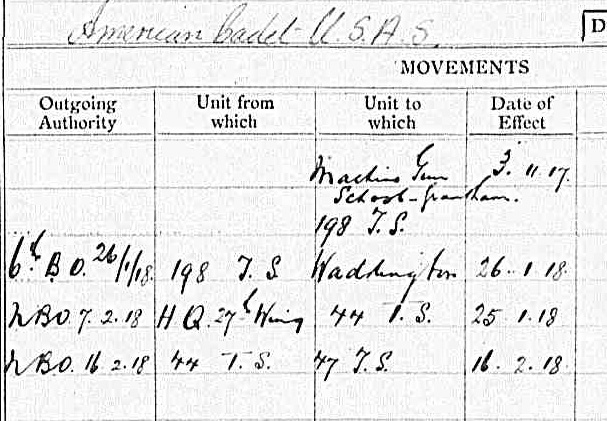 American Cadet U.S.A.S.
D
MOVEMENTS
Outgoing Authority Unit from which Unit to which Date of Effect
Machine Gun 3. 11. 17.
School - Grantham.
198 T.S.
6th B.O. 26/1/18. 198 T.S. Waddington 26. 1. 18.
NBO. 7. 2. 18 H Q. 27th Wing 44 T.S. 25. 1. 18
NBO. 16. 2. 18 44 T.S. 47 T.S. 16. 2. 18.